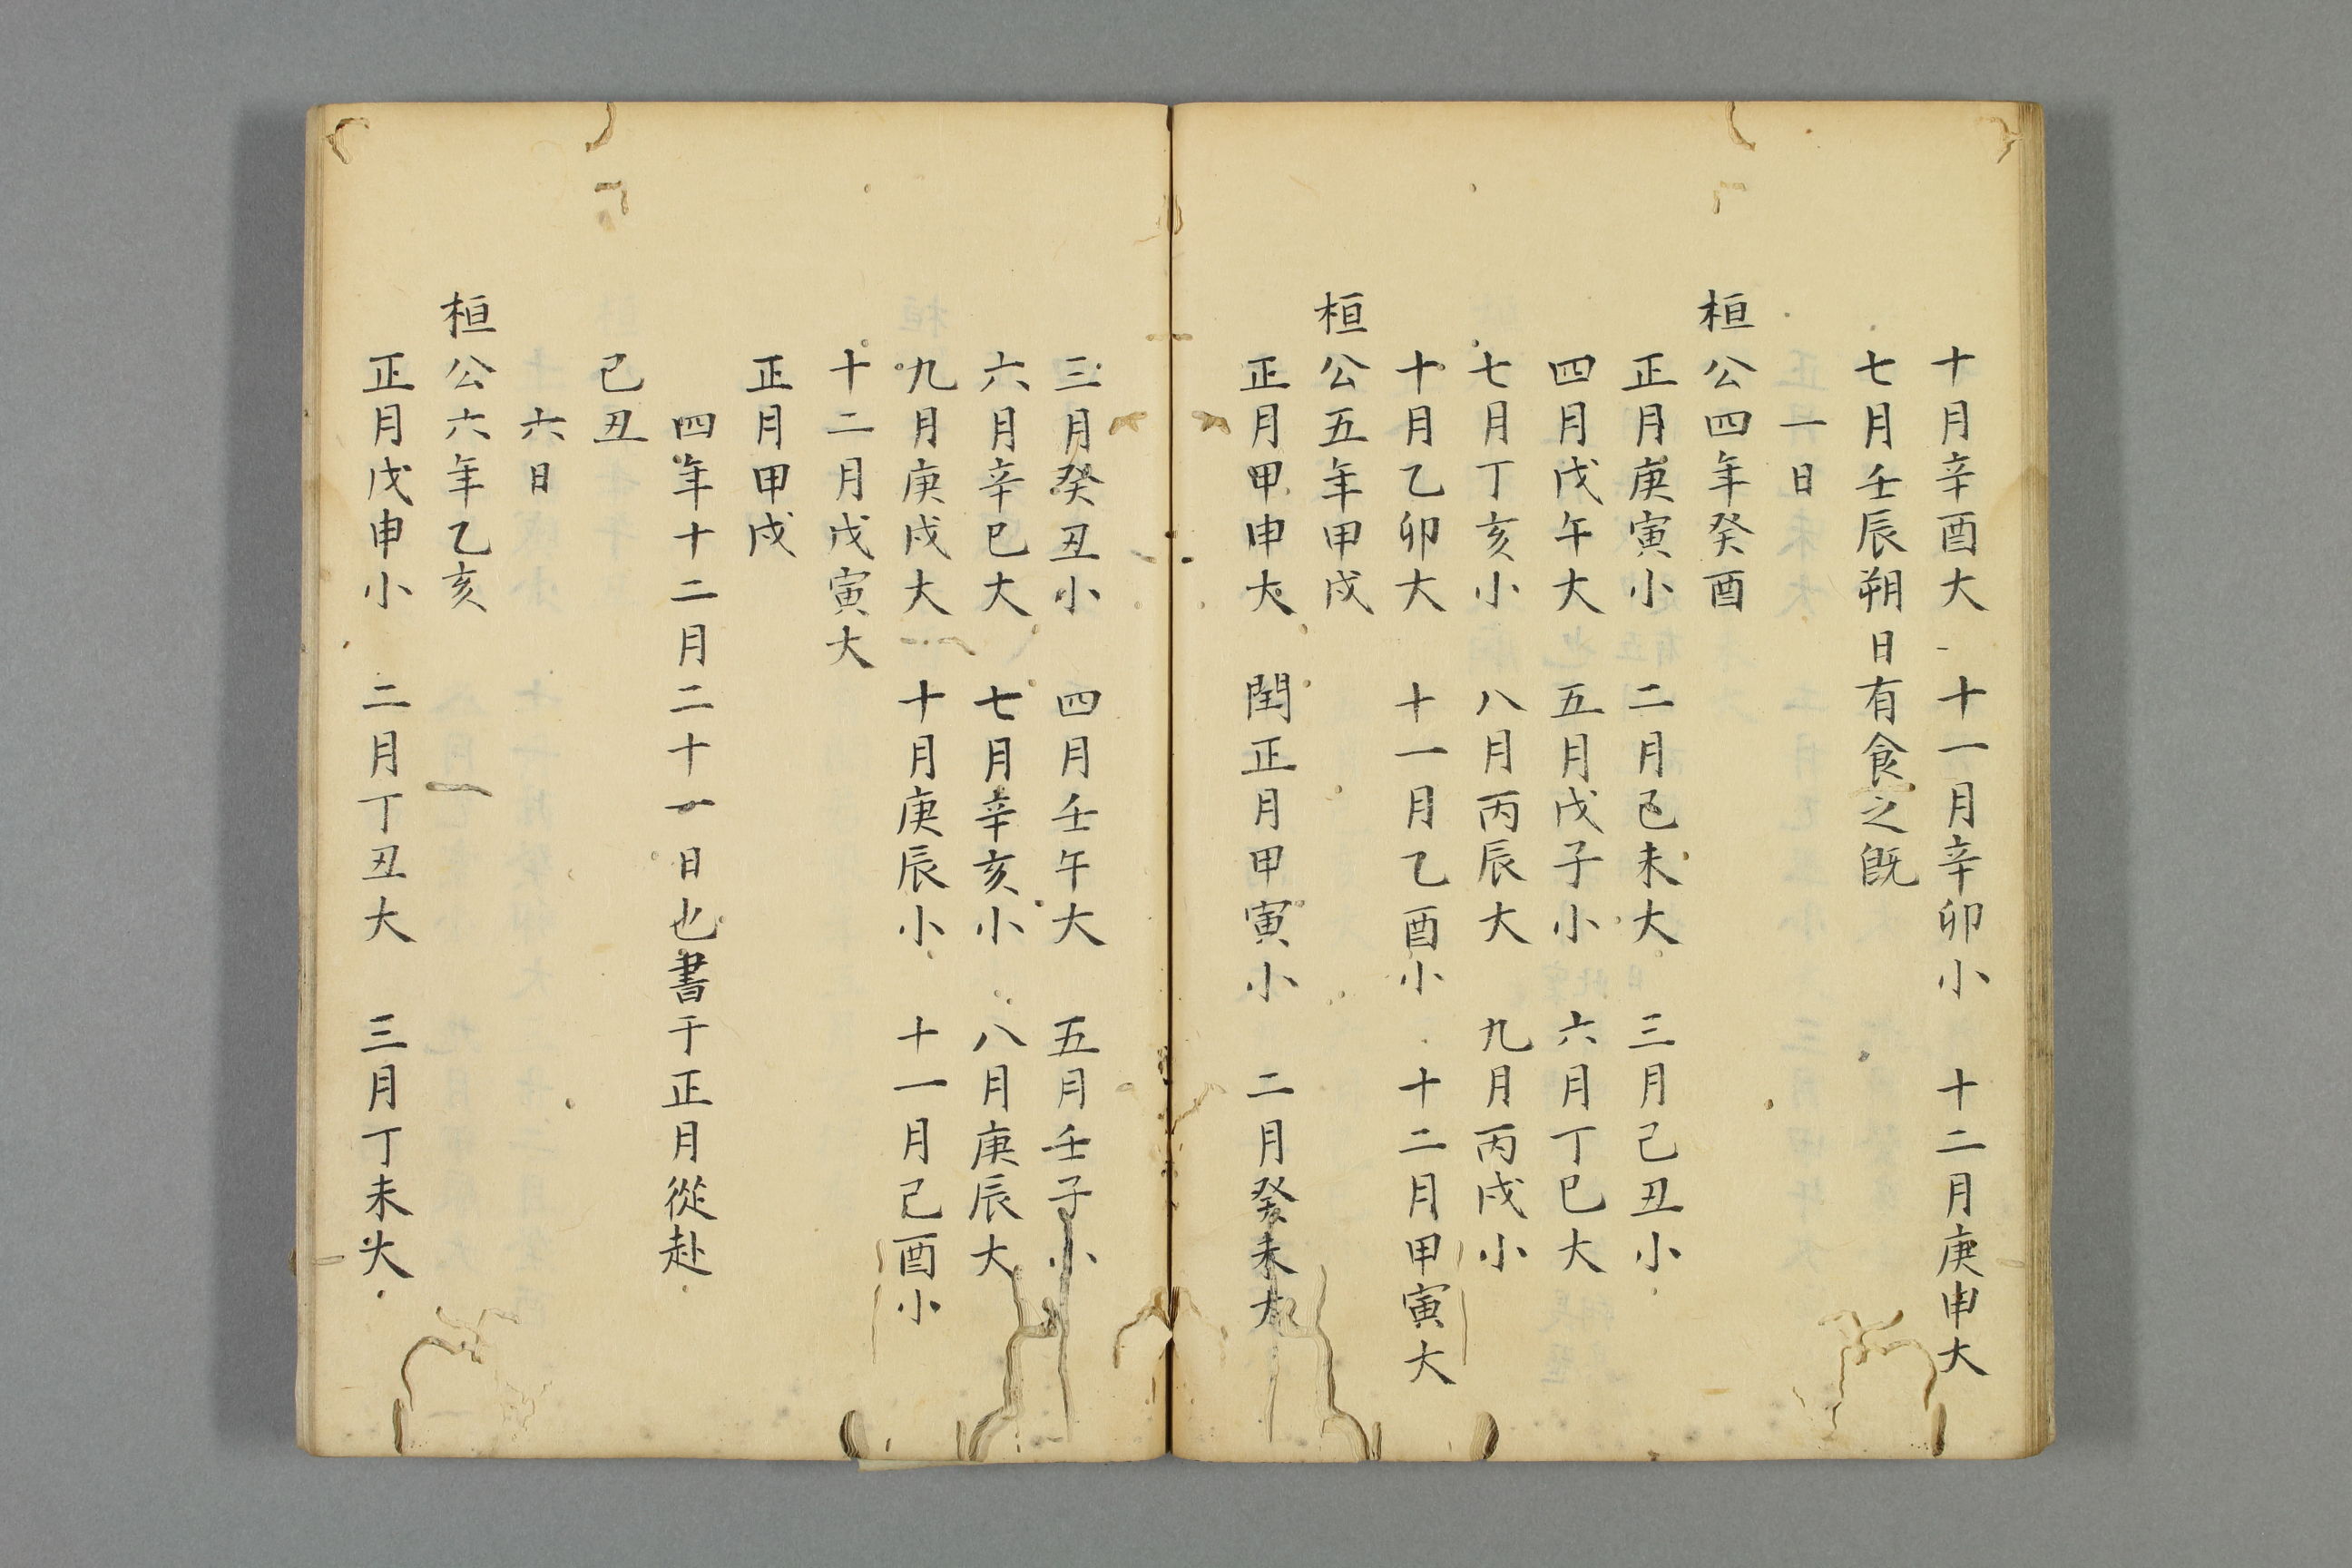 十月辛酉大 十一月辛卯小 十二月庚申大
七月壬辰朔日有食之既
一日
桓公四年癸酉
正月庚寅小 二月己未大 三月己丑小
四月戊午大 五月戊子小 六月丁巳大
七月丁亥小 八月丙辰大 九月丙戌小
十月乙卯大 十一月乙酉小 十二月甲寅大
桓公五年甲戌
正月甲申大 閏正月甲寅小 二月癸未大
三月癸丑小 四月壬午大 五月壬子小
六月辛巳大 七月辛亥小 八月庚辰大
九月庚戌大 十月庚辰小 十一月己酉小
十二月戊寅大
正月甲戌
四年十二月二十一日也書于正月從赴
己丑
六日
桓公六年乙亥
正月戊申小 二月丁丑大 三月丁未大